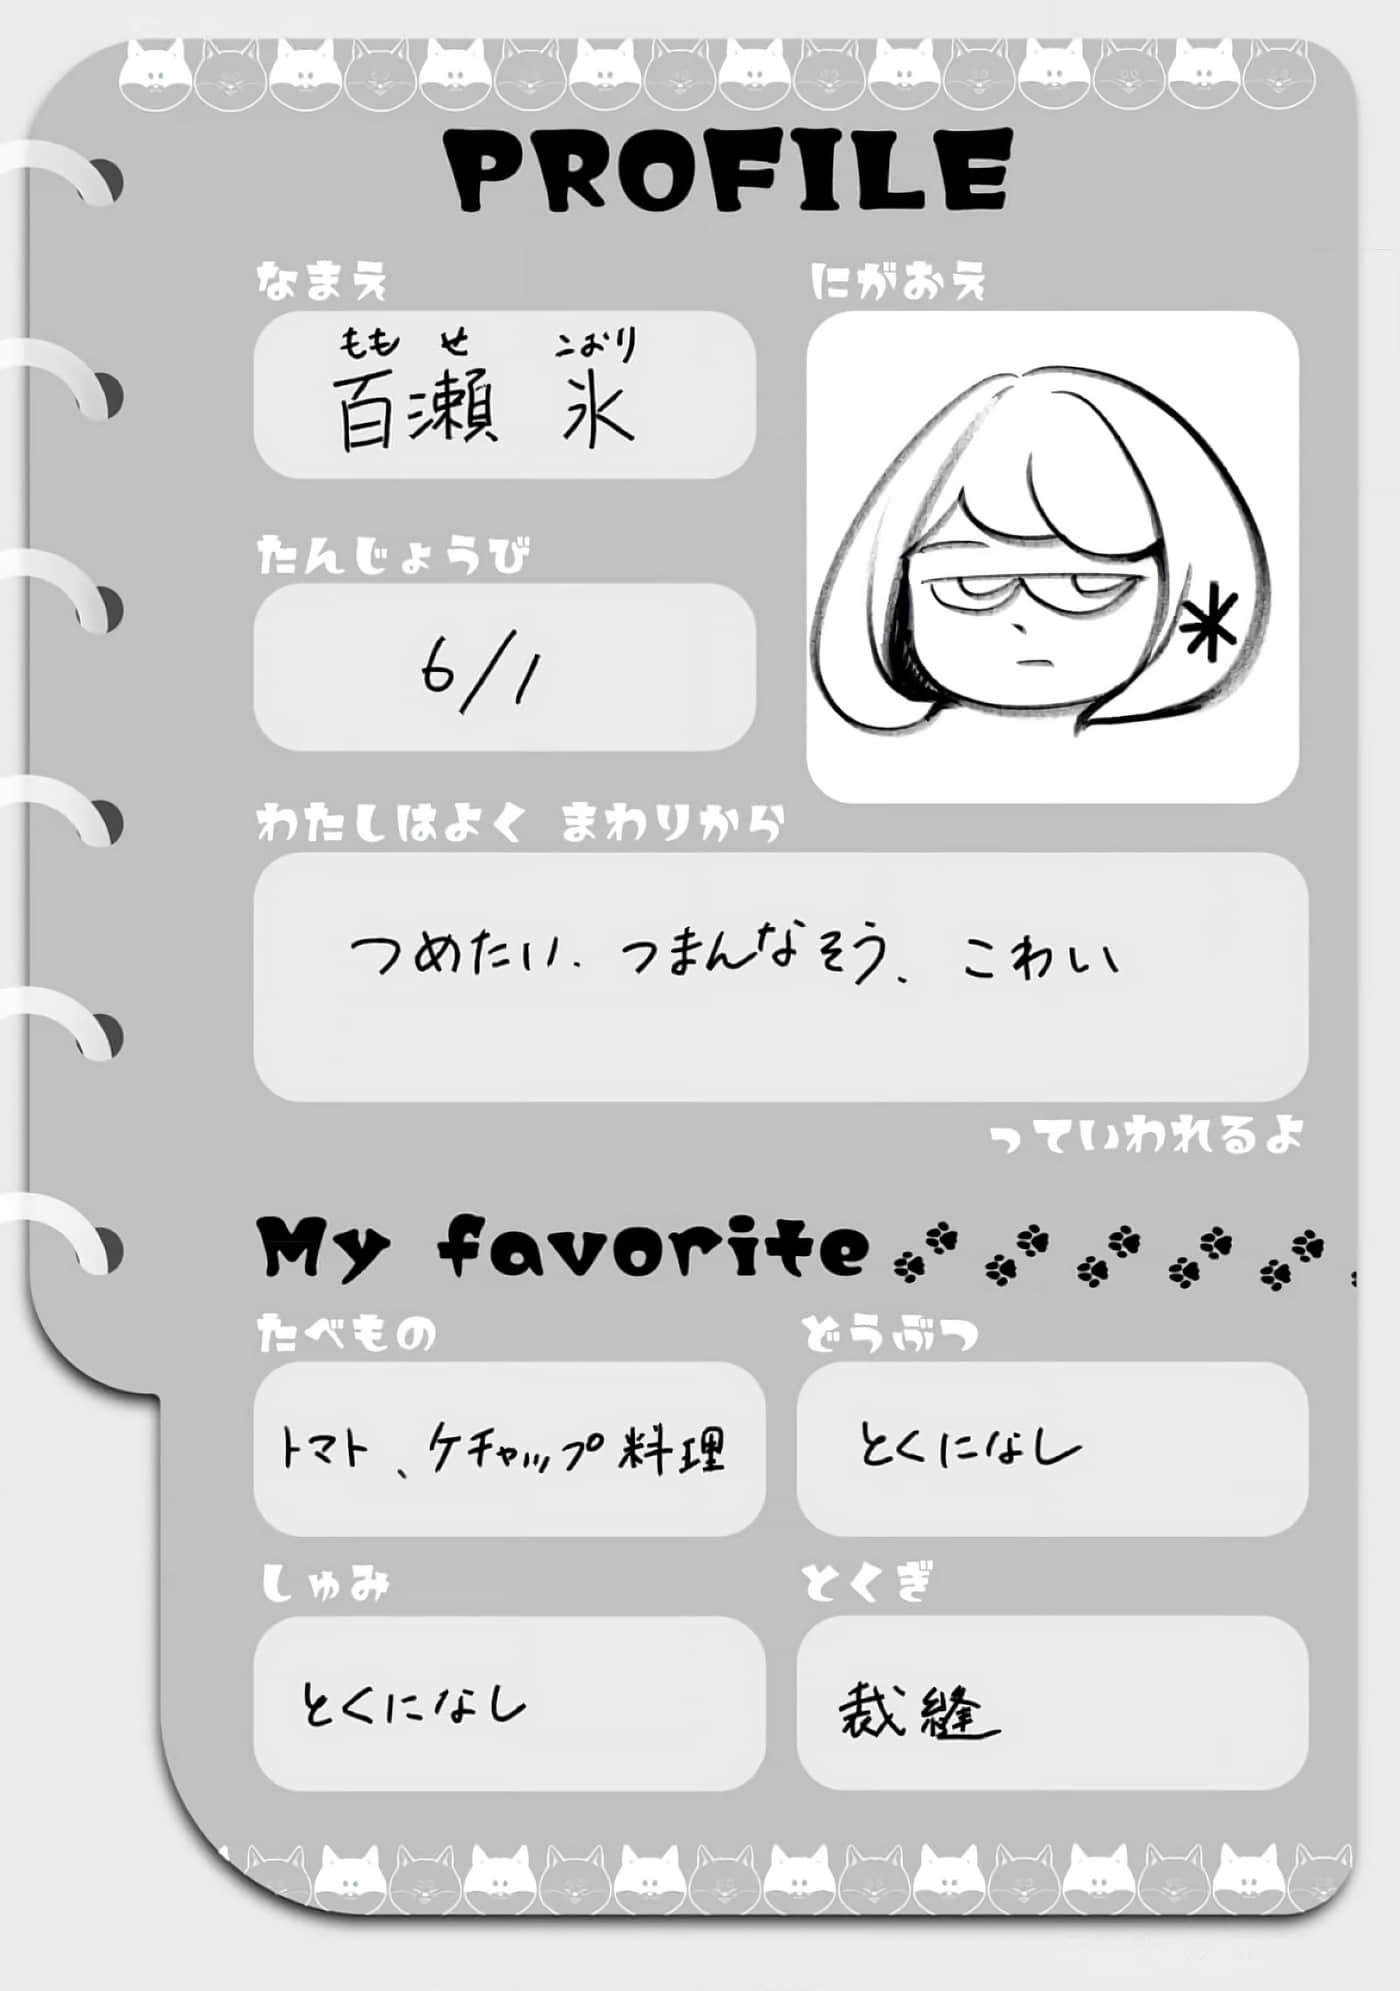 PROFILE
なまえ
ももせ こおり
百瀬 氷
にがおえ
たんじょうび
6/1
わたしはよく まわりから
つめたい、つまんなそう、こわい
っていわれるよ
My favorite
たべもの
トマト、ケチャップ料理
どうぶつ
とくになし
しゅみ
とくになし
とくぎ
裁縫